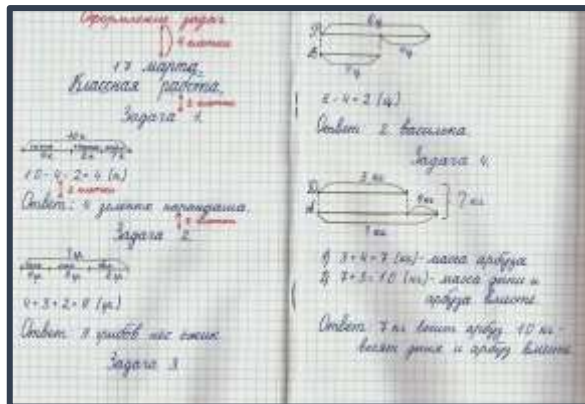 Оформление задач
4 клетки
17 марта.
Классная работа.
2 клетки
Задача 1.
10 к.
10 - 4 - 2 = 4 (к)
2 клетки
Ответ: 4 зеленых карандаша.
2 клетки
Задача 2.
? гр.
4 + 3 + 2 = 9 (гр.)
Ответ: 9 грибов нес ёжик.
Задача 3
6 - 4 = 2 (ц)
Ответ: 2 василька
Задача 4.
3 кг
4 кг
? кг
? кг
1) 3 + 4 = 7 (кг) - масса арбуза
2) 7 + 3 = 10 (кг) - масса дыни и
арбуза вместе
Ответ: 7 кг весит арбуз, 10 кг -
весят дыня и арбуз вместе